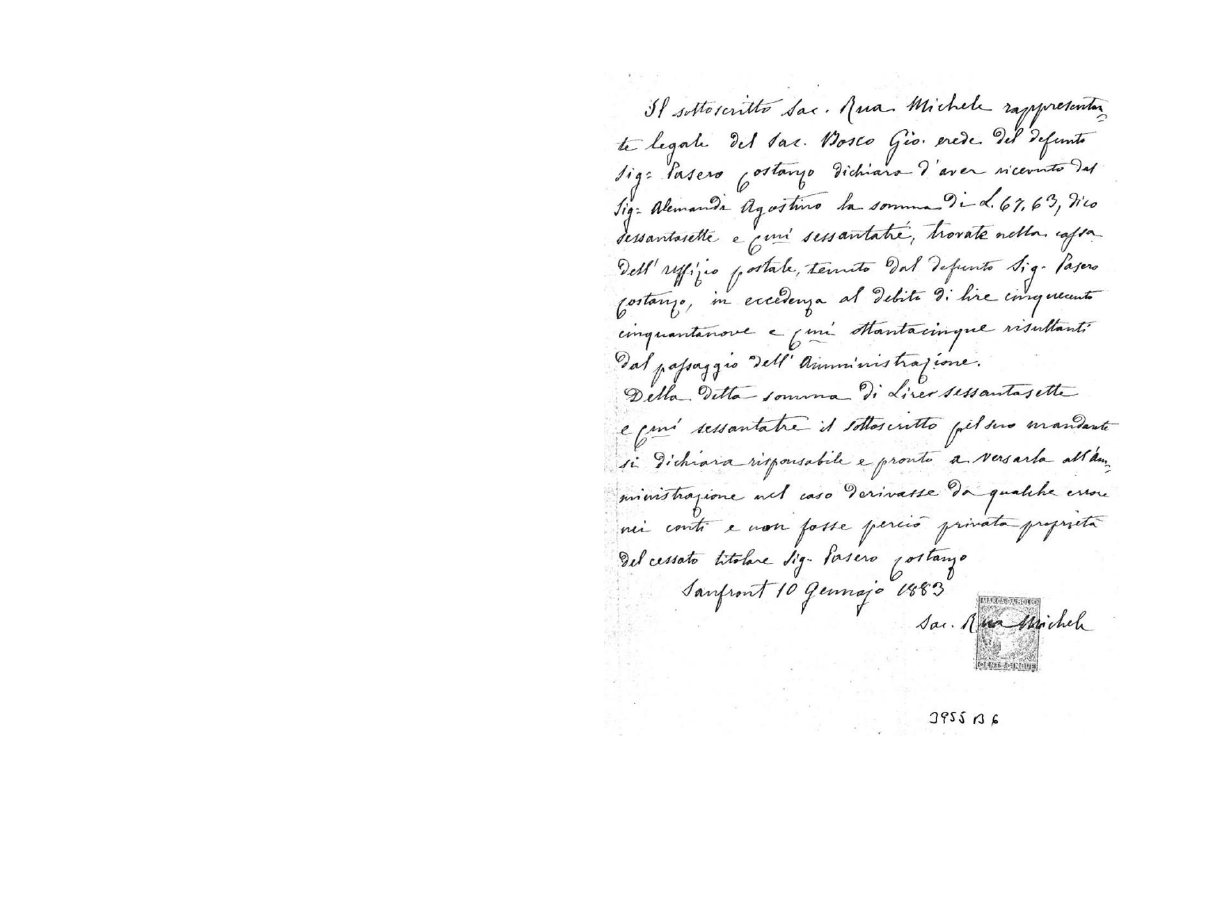 Il sottoscritto Sac. Rua Michele rappresentan=
te legale del Sac. Bosco Gio. erede del defunto
Sig: Pasero Costanzo dichiara d'aver ricevuto dal
Sig: Alemandi Agostino la somma di L. 67,63, dico
sessantasette e c.mi sessantatré, trovate nella cassa
dell'uffizio postale, tenuto dal defunto Sig. Pasero
Costanzo, in eccedenza al debito di lire cinquecento
cinquantanove e c.mi ottantacinque risultanti
dal passaggio dell'Amministrazione.
Della detta somma di Lire sessantasette
e c.mi sessantatre il sottoscritto pel suo mandante
si dichiara risponsabile e pronto a versarla all'Am=
ministrazione nel caso derivasse da qualche errore
nei conti e non fosse perciò privata proprietà
del cessato titolare Sig. Pasero Costanzo
Sanfront 10 Gennajo 1883
Sac. Rua Michele
MARCA DA BOLLO
CENT. CINQUE
3955 B 6